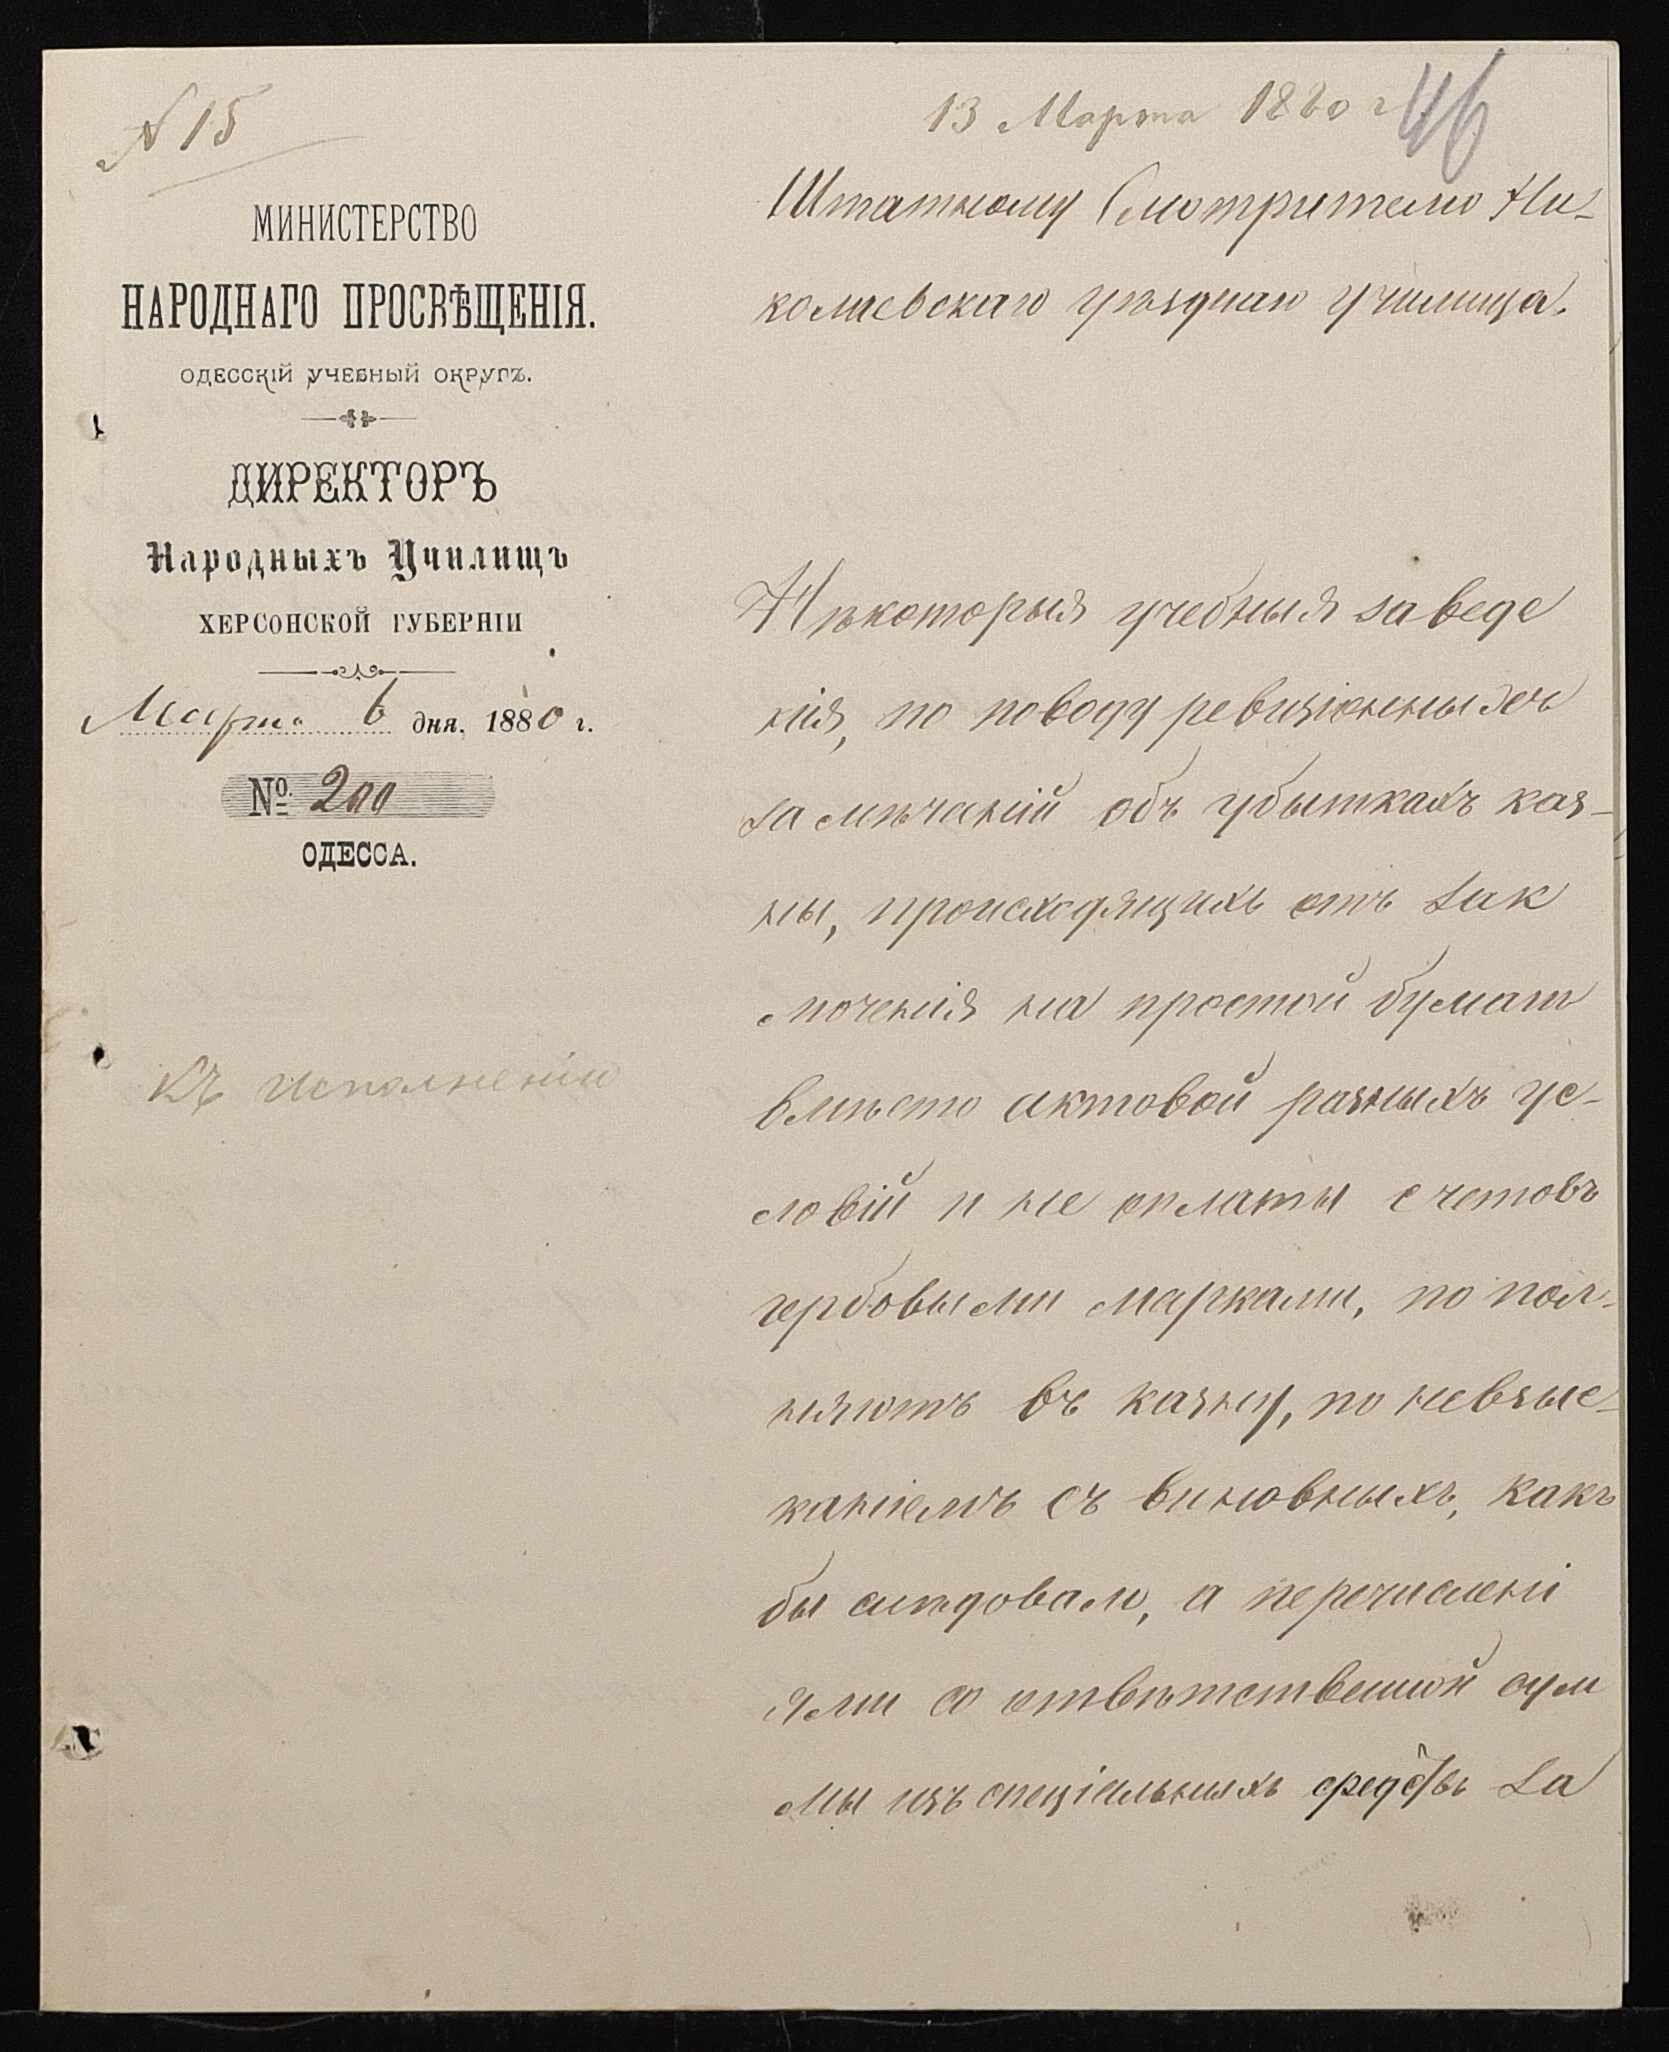 № 15
13 Марта 1880 г
46
МИНИСТЕРСТВО
НАРОДНАГО ПРОСВѢЩЕНІЯ.
ОДЕССКІЙ УЧЕБНЫЙ ОКРУГЪ.
ДИРЕКТОРЪ
Народныхъ Училищъ
ХЕРСОНСКОЙ ГУБЕРНІИ
Марта 6 дня, 1880 г.
№ 200
ОДЕССА.
Къ исполненію
Штатному Смотрителю Ни-
колаевскаго уѣзднаго училища.
Нѣкоторыя учебныя заведе
нія, по поводу ревизіонныхъ
замѣчаній объ убыткахъ каз-
ны, происходящихъ отъ зак
люченія на простой бумагѣ
вмѣсто актовой разныхъ ус-
ловій и не оплаты счетовъ
гербовыми марками, по пол-
няютъ въ казну, но невзыс-
каніемъ съ виновныхъ, какъ
бы слѣдовало, а перечислені
ями соотвѣтственной сум
мы изъ спеціальныхъ средствъ за